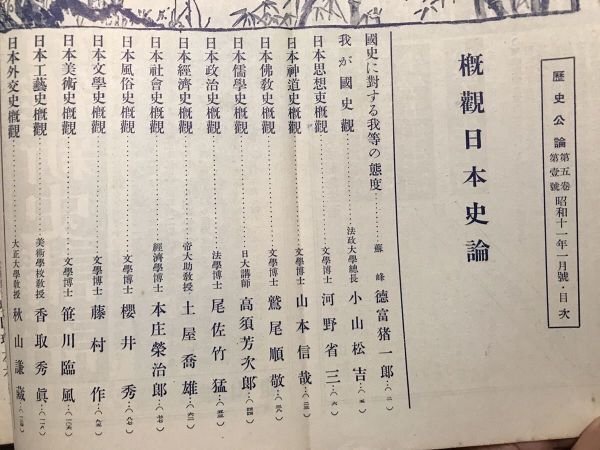 歷史公論 第五卷第壹號 昭和十一年一月號・目次
概觀日本史論
國史に對する我等の態度 蘇峰 德富猪一郎
我が國史觀 法政大學總長 小山松吉
日本思想史槪觀 文學博士 河野省三
日本神道史槪觀 文學博士 山本信哉
日本佛敎史槪觀 文學博士 鷲尾順敬
日本儒學史槪觀 日大講師 高須芳次郎
日本政治史槪觀 法學博士 尾佐竹猛
日本經濟史槪觀 帝大助敎授 土屋喬雄
日本社會史槪觀 經濟學博士 本庄榮治郎
日本風俗史槪觀 文學博士 櫻井秀
日本文學史槪觀 文學博士 藤村作
日本美術史槪觀 文學博士 笹川臨風
日本工藝史槪觀 美術學校敎授 香取秀眞
日本外交史槪觀 大正大學敎授 秋山謙藏